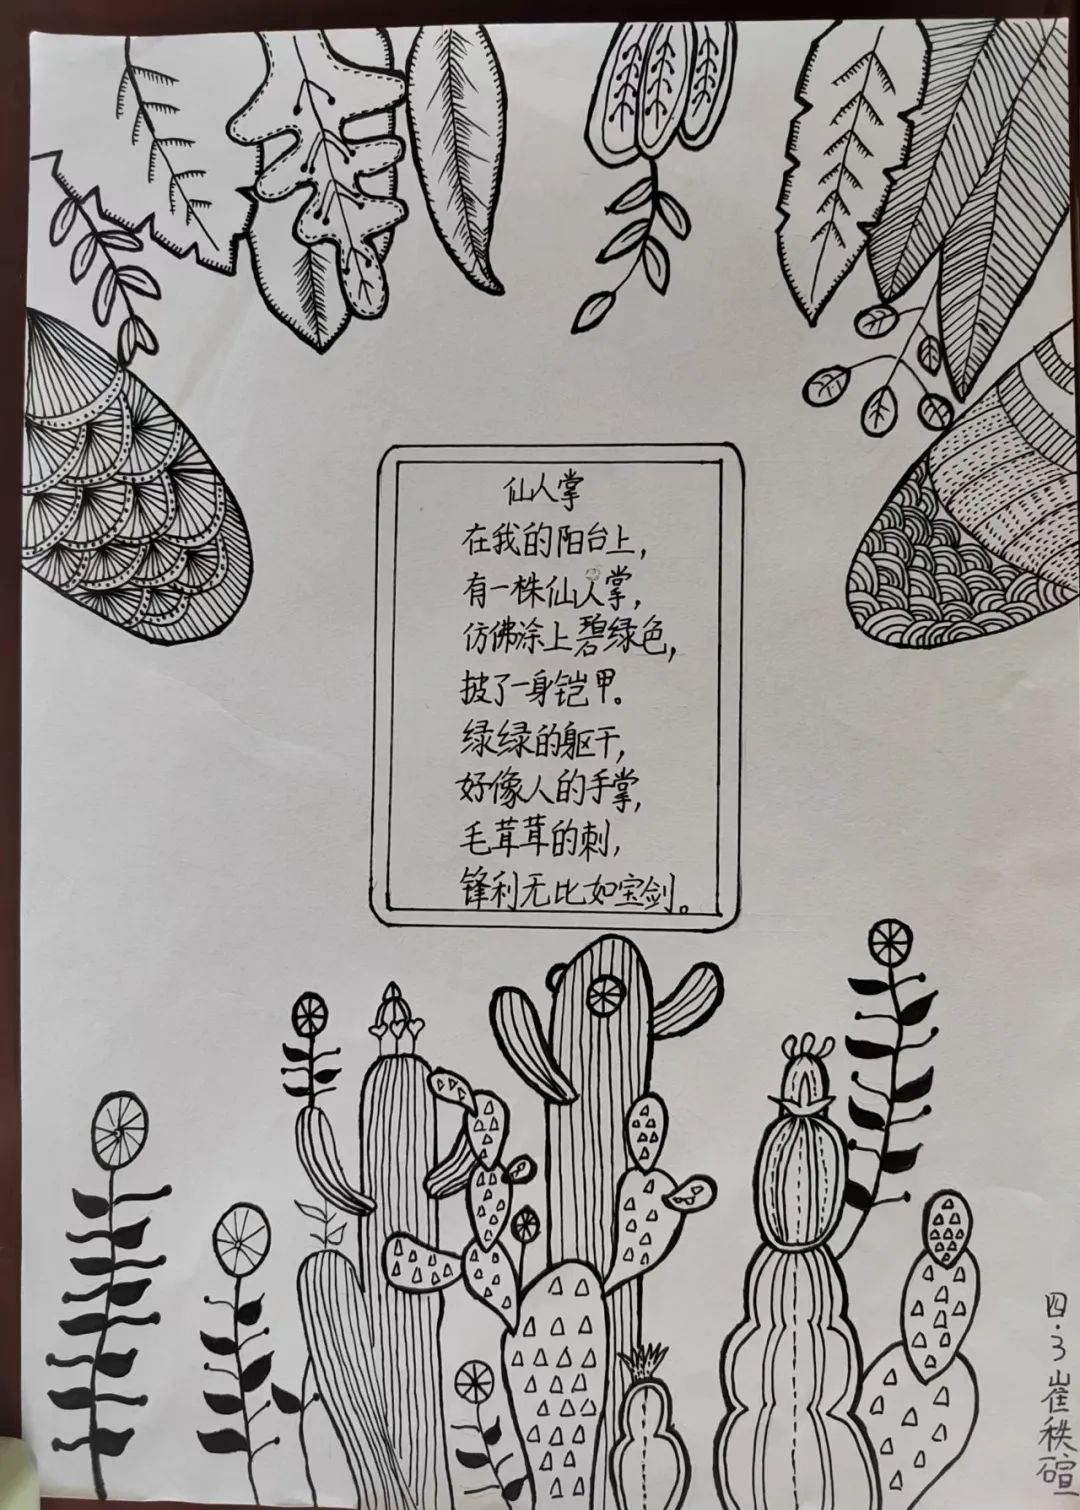 仙人掌
在我的阳台上，
有一株仙人掌，
仿佛涂上碧绿色，
披了一身铠甲。
绿绿的躯干，
好像人的手掌，
毛茸茸的刺，
锋利无比如宝剑。
四·3崔秩碹